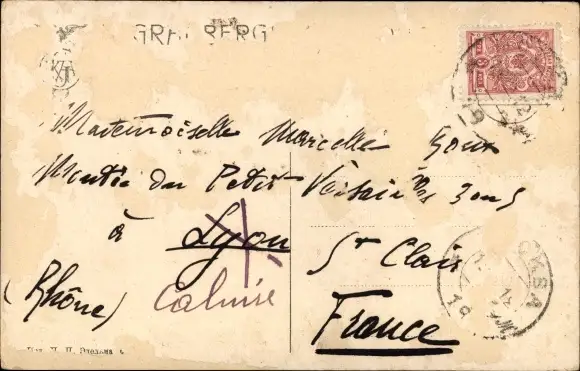 GRANBERG
Mademoiselle Marcelle Goux
Montée du Petit Versailles 3 ou 5
à Lyon St Clair
(Rhône) Caluire France
МОСКВА